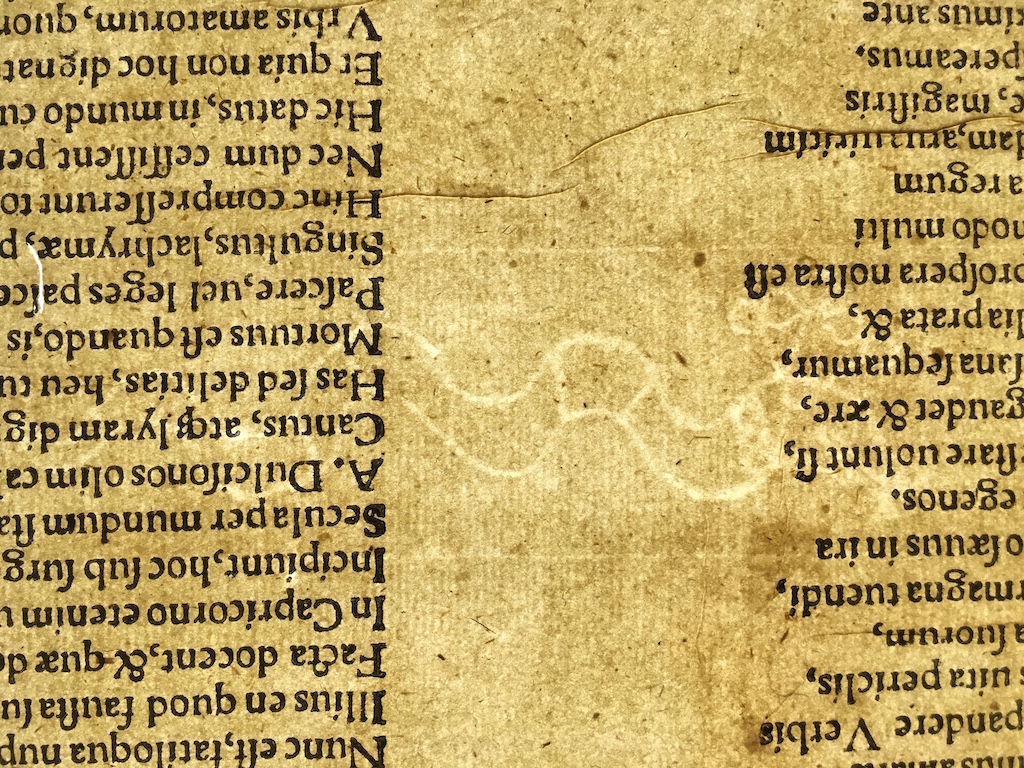 pandere Verbis
s uita periclis,
a ſuorum,
magna tuendi,
o ſæuus in ira
egenos.
ſtare uolunt ſi,
gaudet & ære,
ſana ſequamur,
dia prata &,
proſpera noſtra eſt
modo multi
a regum
dam, arua uiritim
e, magiſtris
pereamus,
ximus ante
Nunc eſt, fatiloqua nup
Illius en quod fauſta ſu
Facta docent, & quæ do
In Capricorno etenim u
Incipiunt, hoc ſub ſurg
Secula per mundum ſta
A. Dulciſonos olim ca
Cantus, atq; lyram dig
Has ſed delitias, heu tu
Mortuus eſt quando, is
Paſcere, uel leges paſce
Singultus, lachrymæ, p
Hinc compreſſerunt to
Nec dum ceſſiſſent pe
Hic datus, in mundo cu
Et quia non hoc dignat
Vrbis amatorum, quon